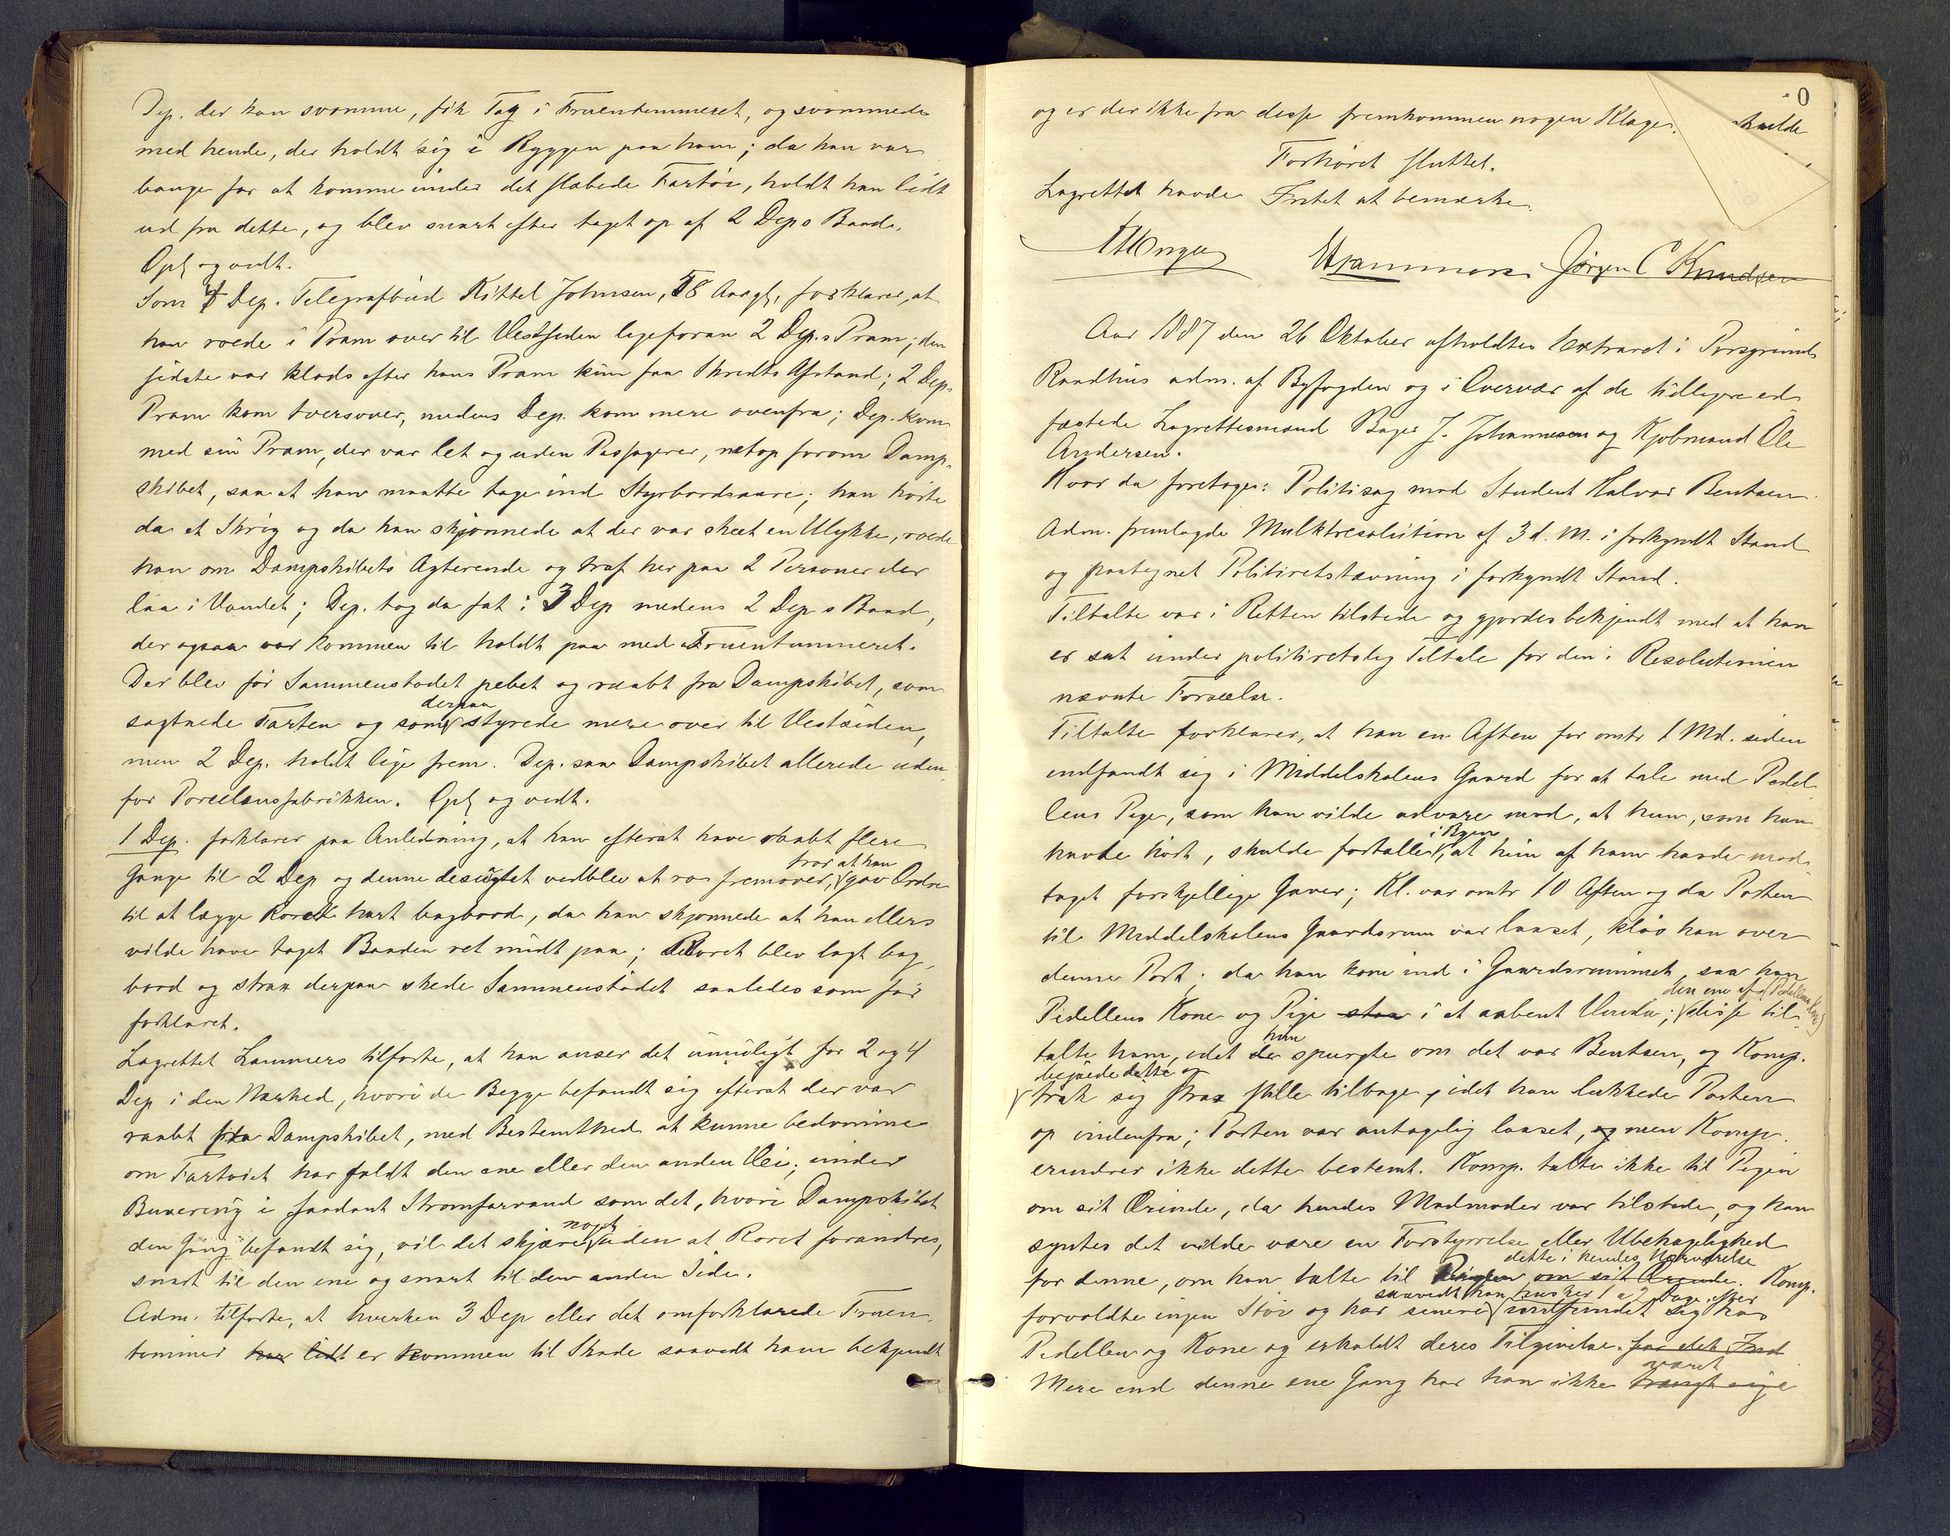 Dep. der kan svømme, fik Tag i Fruentemmeret, og svømmede
med hende, der holdt sig i Ryggen paa ham; da han var
bange for at komme under det slæbede Fartøi, holdt han lidt
ud fra dette, og blev snart efter taget op af 2 Deps Baad.
Opl. og vedt.
Som 4 Dep. Telegrafbud Kittel Johnsen, 18 Aar gl., forklarer, at
han roede i Pram over til Vestsiden ligeforan 2 Dep.s Pram; den
sidste var klods efter hans Pram kun faa Skridts Afstand; 2 Deps
Pram kom tversover, medens Dep. kom mere ovenfra; Dep. kom
med sin Pram, der var let og uden Passagerer, netop forom Damp-
skibet, saa at han maatte tage ind Styrbordsaare; han hørte
da et Skrig og da han skjønnede at der var skeet en Ulykke, roede
han om Dampskibets Agterende og traf her paa 2 Personer der
laa i Vandet; Dep. tog da fat i 3 Dep medens 2 Dep s Baad,
der ogsaa var kommen til holdt paa med Fruentemmeret.
Der blev før Sammenstødet pebet og raabt fra Dampskibet, som
sagtnede Farten og som derpaa styrede mere over til Vestsiden,
men 2 Dep. holdt lige frem. Dep. saa Dampskibet allerede uden-
for Porcelænsfabrikken. Opl. og vedt.
1 Dep. forklarer paa Anledning, at han efterat have raabt flere
Gange til 2 Dep og denne desuagtet vedblev at ro fremover, tror at han gav Ordre
til at lægge Roret hart bagbord, da han skjønnede at han ellers
vilde have taget Baaden ret midt paa; Roret blev lagt bag-
bord og strax derpaa skede Sammenstødet saaledes som før
forklaret.
Lagrettet Lammers tilførte, at han anser det umuligt for 2 og 4
Dep i den Nærhed, hvori de Begge befandt sig efterat der var
raabt fra Dampskibet, med Bestemthed at kunne bedømme
om Fartøiet har faldt den ene eller den anden Vei; under
Buxering i saadant Strømfarvand som det, hvori Dampskibet
den Gang befandt sig, vil det skjære noget uden at Roret forandres,
snart til den ene og snart til den anden Side.
Adm. tilførte, at hverken 3 Dep eller det omforklarede Fruen-
temmer har lidt er kommen til Skade saavidt ham bekjendt
og er der ikke fra disse fremkommen nogen Klage.
Forhøret sluttet.
Lagrettet havde Intet at bemærke.
Lammers. Jørgen C Knudsen
Aar 1887 den 26 Oktober afholdtes Extraret i Porsgrunds
Raadhus adm. af Byfogden og i Overvær af de tidligere ed-
fæstede Lagrettesmænd Bager J. Johannesen og Kjøbmand Ole
Andersen.
Hvor da foretoges: Politisag mod Student Halvor Bentsen.
Adm. fremlagde Mulktresolution af 3 d. M. i forkyndt Stand
og paategnet Politiretstævning i forkyndt Stand.
Tiltalte var i Retten tilstede og gjordes bekjendt med at han
er sat under politiretslig Tiltale for den i Resolutionen
nævnte Forseelse.
Tiltalte forklarer, at han en Aften for omtr 1 Md. siden
indfandt sig i Middelskolens Gaard for at tale med Pedel-
lens Pige, som han vilde advare mod, at hun, som han
havde hørt, skulde fortalle i Byen, at hun af ham havde mod-
taget forskjellige Gaver; Kl. var omtr 10 Aften og da Porten
til Middelskolens Gaardsrum var laaset, kløv han over
denne Port; da han kom ind i Gaardsrummet, saa han
Pedellens Kone og Pige staa i et aabent Vindu; den ene af disse (Pedellens Kone) til-
talte ham, idet hun spurgte om det var Bentsen, og Komp.
bejaede dette og trak sig strax stille tilbage, idet han lukkede Porten
op indenfra; Porten var antagelig laaset, og men Komp.
erindrer ikke dette bestemt. Komp. talte ikke til Pigen
om sit Ærinde, da hendes Madmoder var tilstede, og han
syntes det vilde være en Forstyrrelse eller Ubehagelighed
for denne, om han talte til Pigen om sit Ærinde dette i hendes Nærværelse. Komp.
forvoldte ingen Støi og har senere saavidt han husker 1 a 2 Dage efter indfundet sig hos
Pedellen og Kone og erholdt deres Tilgivelse. for det Ind
Mere end denne ene Gang har han ikke været trængt sig